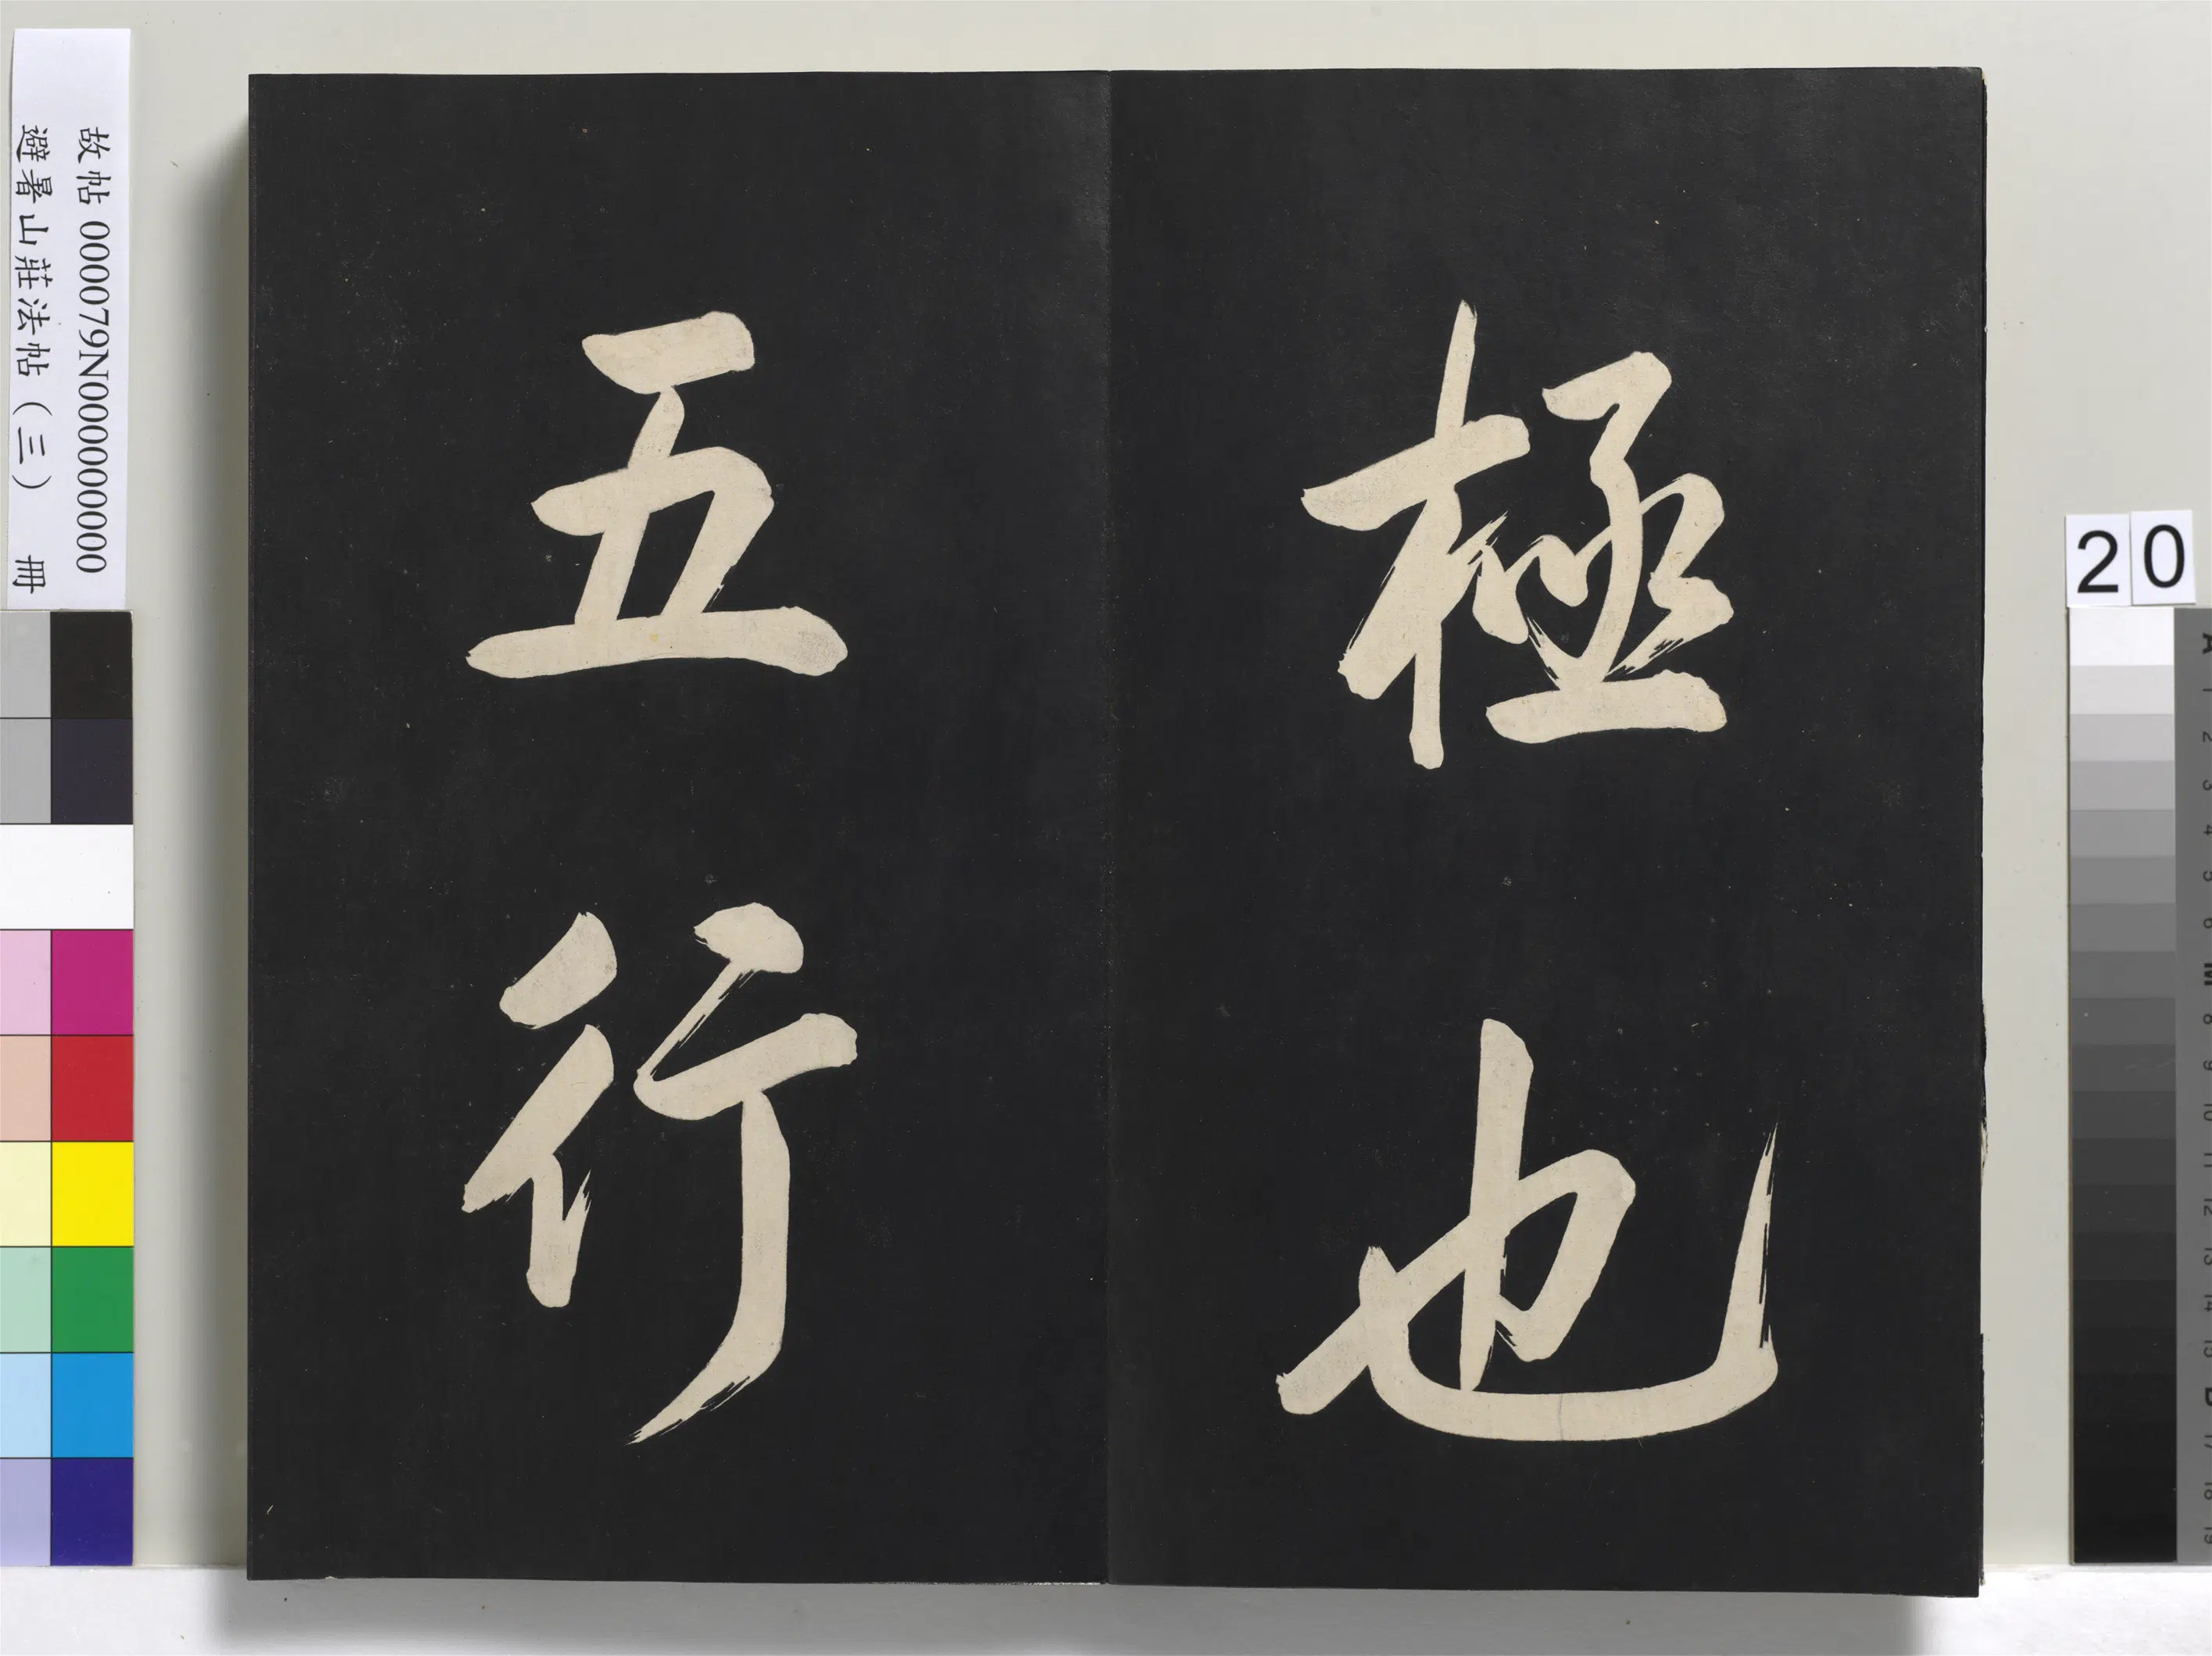 極也
五行
故帖 000079N000000000
避暑山莊法帖（三） 冊
20
A
1
2
3
4
5
6
M
8
9
10
11
12
13
14
15
B
17
18
19